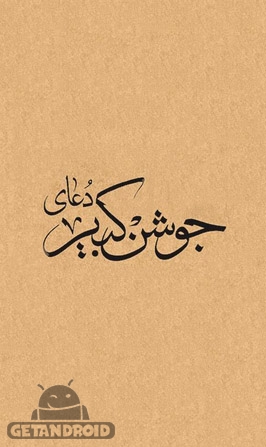 دُعای
جوشن کبیر
GETANDROID